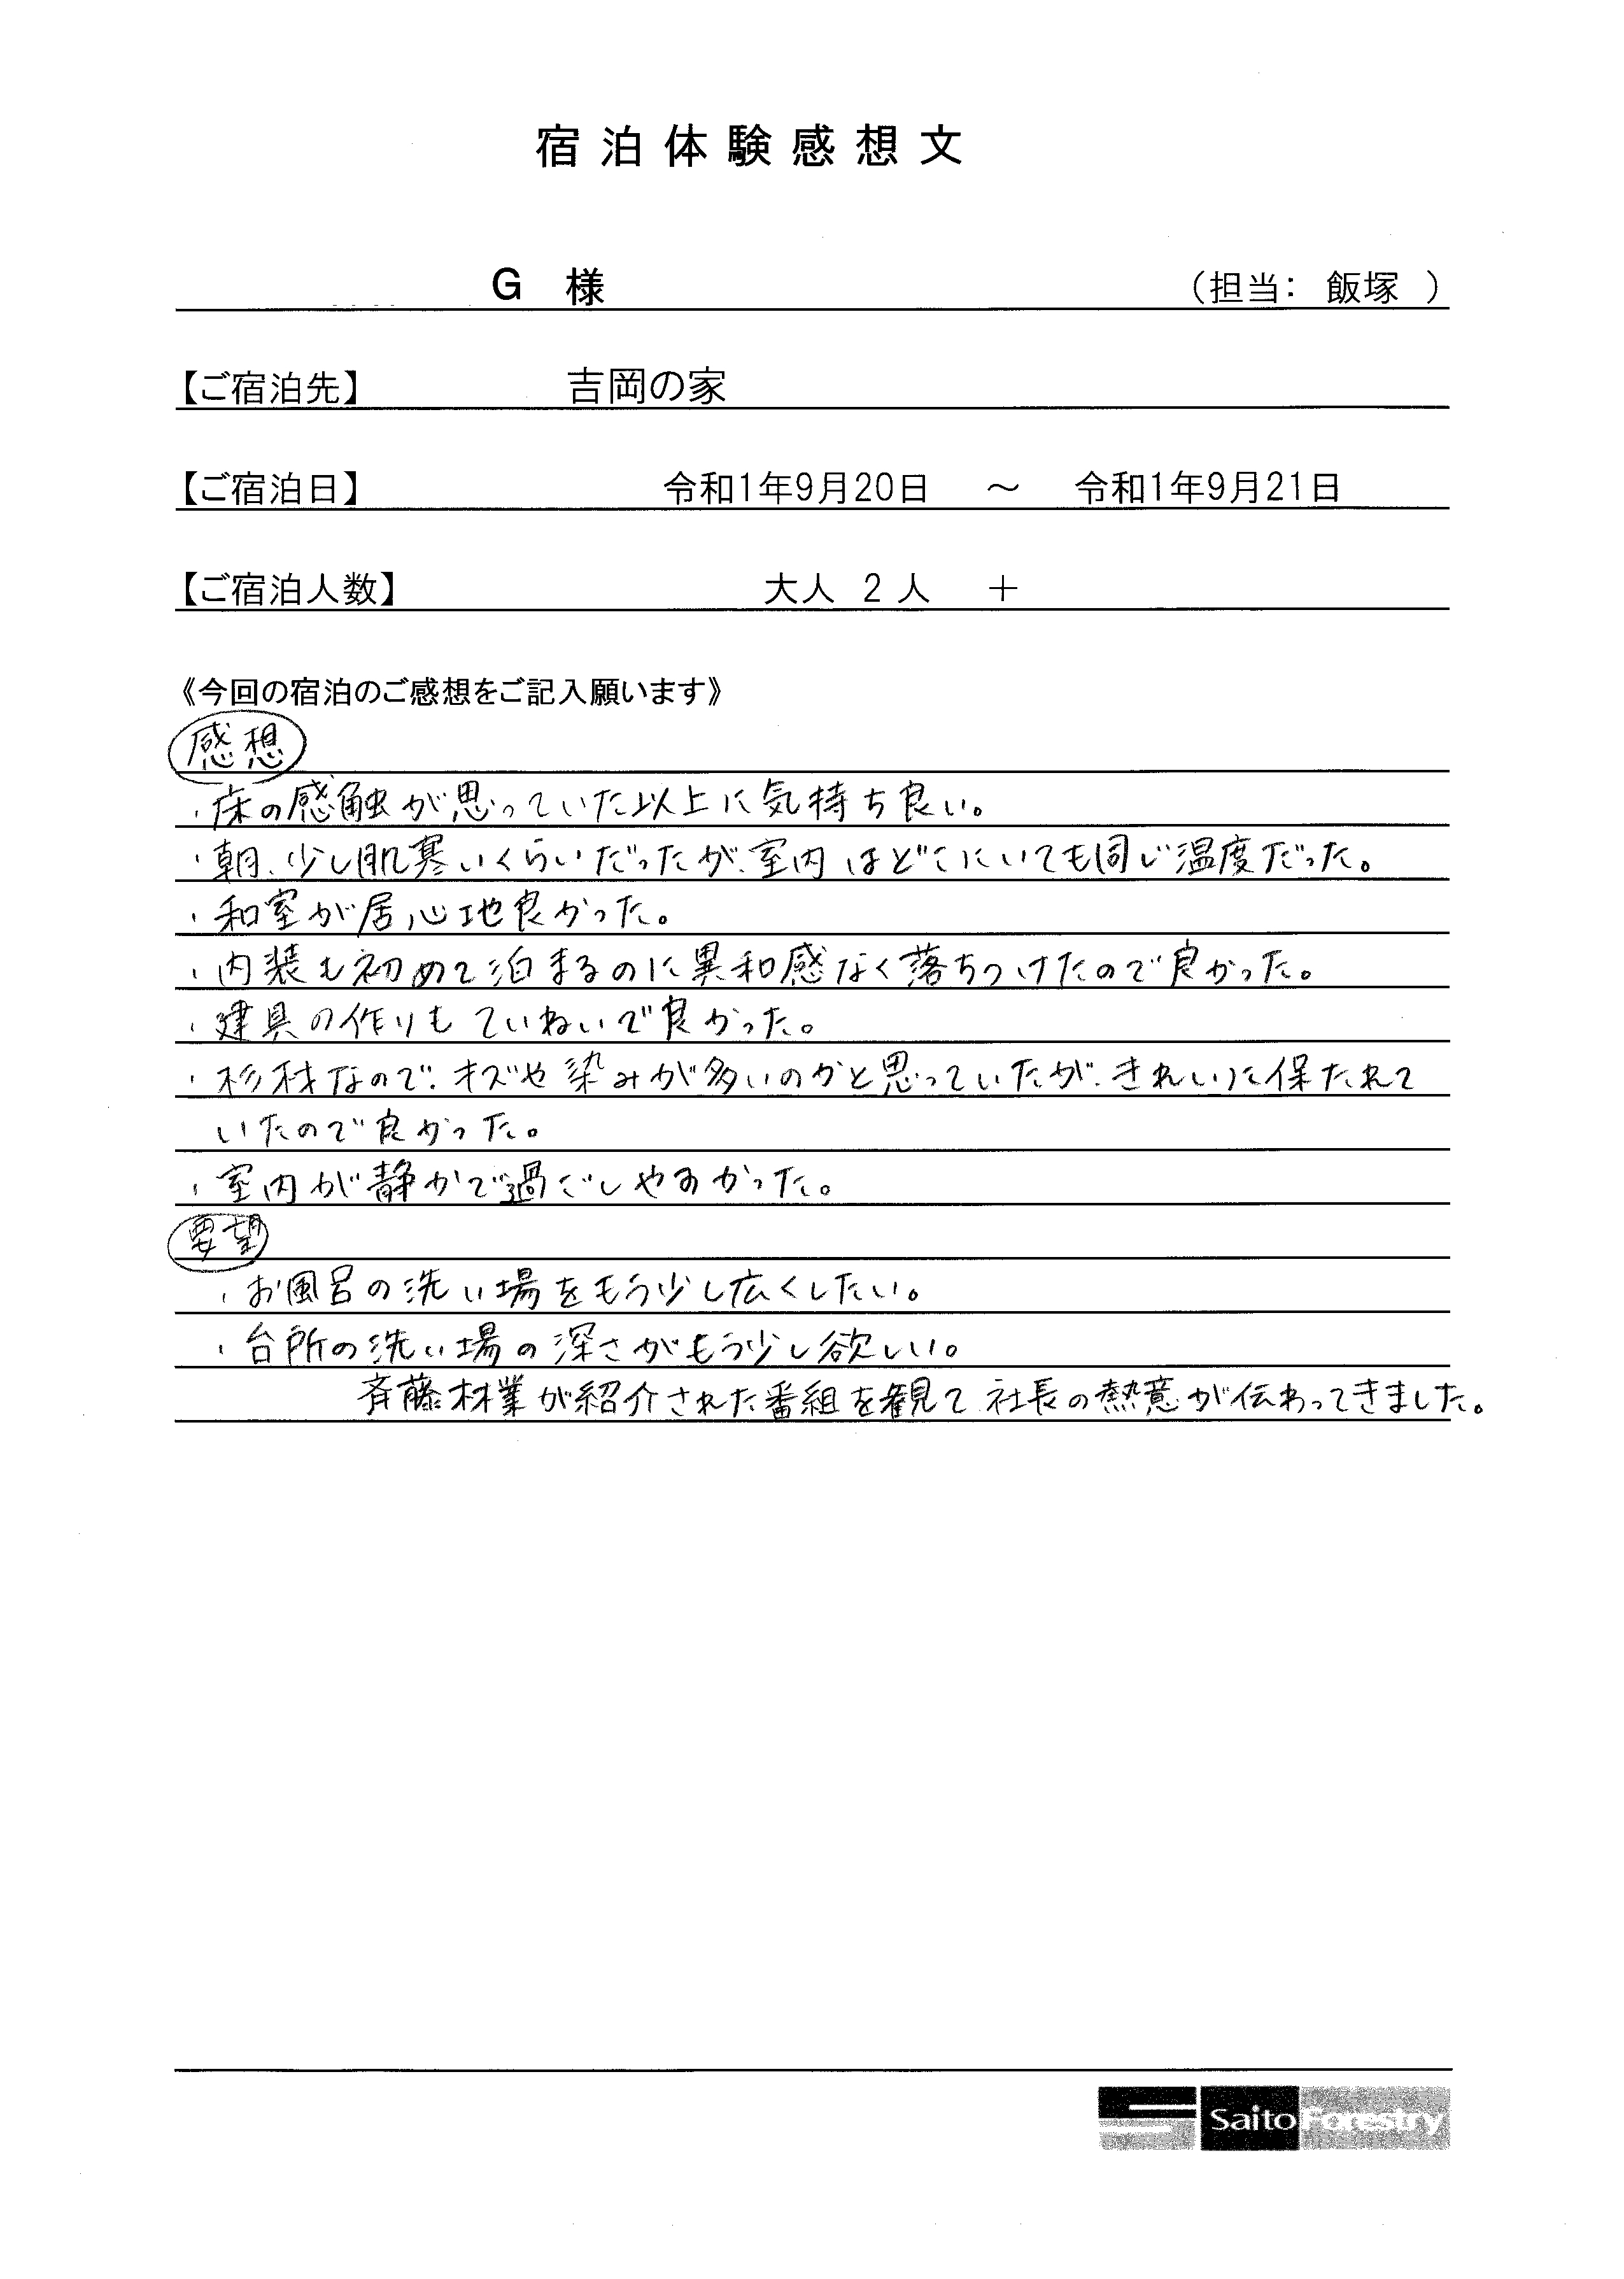 宿泊体験感想文
G 様 （担当： 飯塚 ）
【ご宿泊先】 吉岡の家
【ご宿泊日】 令和1年9月20日 ～ 令和1年9月21日
【ご宿泊人数】 大人 2 人 ＋
《今回の宿泊のご感想をご記入願います》
感想
・床の感触が思っていた以上に気持ち良い。
・朝、少し肌寒いくらいだったが、室内はどこにいても同じ温度だった。
・和室が居心地良かった。
・内装も初めて泊まるのに異和感なく落ちつけたので良かった。
・建具の作りもていねいで良かった。
・杉材なので、キズや染みが多いのかと思っていたが、きれいに保たれて
いたので良かった。
・室内が静かで過ごしやすかった。
要望
・お風呂の洗い場をもう少し広くしたい。
・台所の洗い場の深さがもう少し欲しい。
斉藤林業が紹介された番組を観て 社長の熱意が伝わってきました。
Saito Forestry